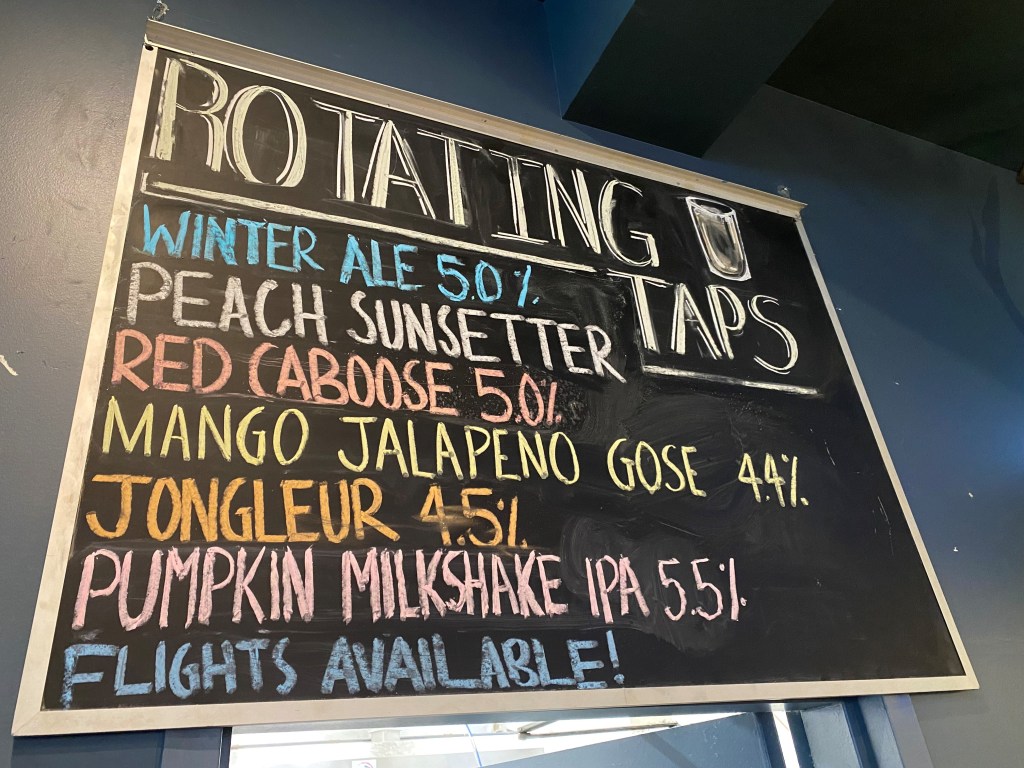 ROTATING
TAPS
WINTER ALE 5.0%
PEACH SUNSETTER
RED CABOOSE 5.0%
MANGO JALAPENO GOSE 4.4%
JONGLEUR 4.5%
PUMPKIN MILKSHAKE IPA 5.5%
FLIGHTS AVAILABLE!